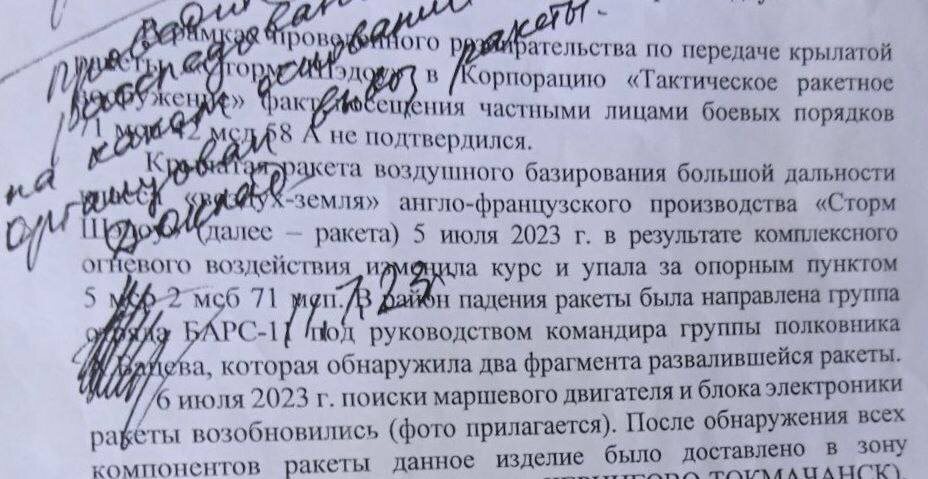 В рамках проведенного разбирательства по передаче крылатой
ракеты «Сторм Шэдоу» в Корпорацию «Тактическое ракетное
вооружение» факт посещения частными лицами боевых порядков
71 мсп 42 мсд 58 А не подтвердился.
Крылатая ракета воздушного базирования большой дальности
класса «воздух-земля» англо-французского производства «Сторм
Шэдоу» (далее – ракета) 5 июля 2023 г. в результате комплексного
огневого воздействия изменила курс и упала за опорным пунктом
5 мср 2 мсб 71 мсп. В район падения ракеты была направлена группа
отряда БАРС-11 под руководством командира группы полковника
которая обнаружила два фрагмента развалившейся ракеты.
6 июля 2023 г. поиски маршевого двигателя и блока электроники
ракеты возобновились (фото прилагается). После обнаружения всех
компонентов ракеты данное изделие было доставлено в зону
ТОКМАЧАНСК).
на каком основании
организован вывоз ракеты.
Доклад
11.7.23